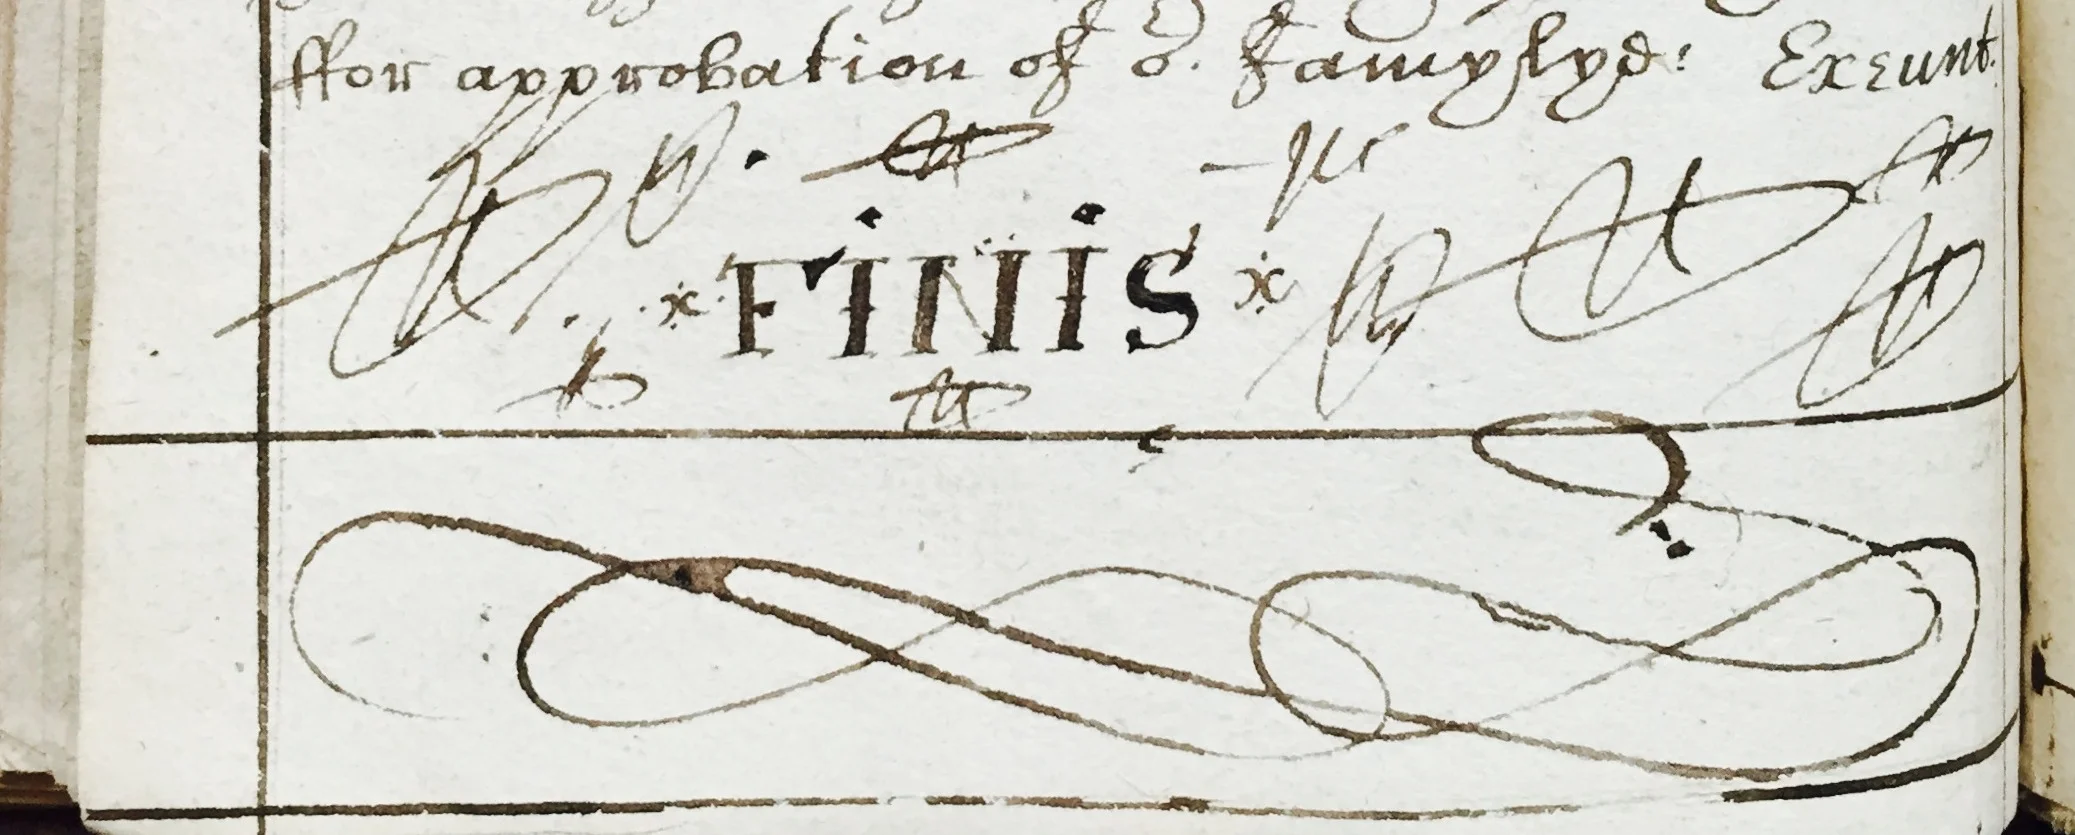 ffor approbation of oͬ. Famylyes: Exeunt.
x FINIS x